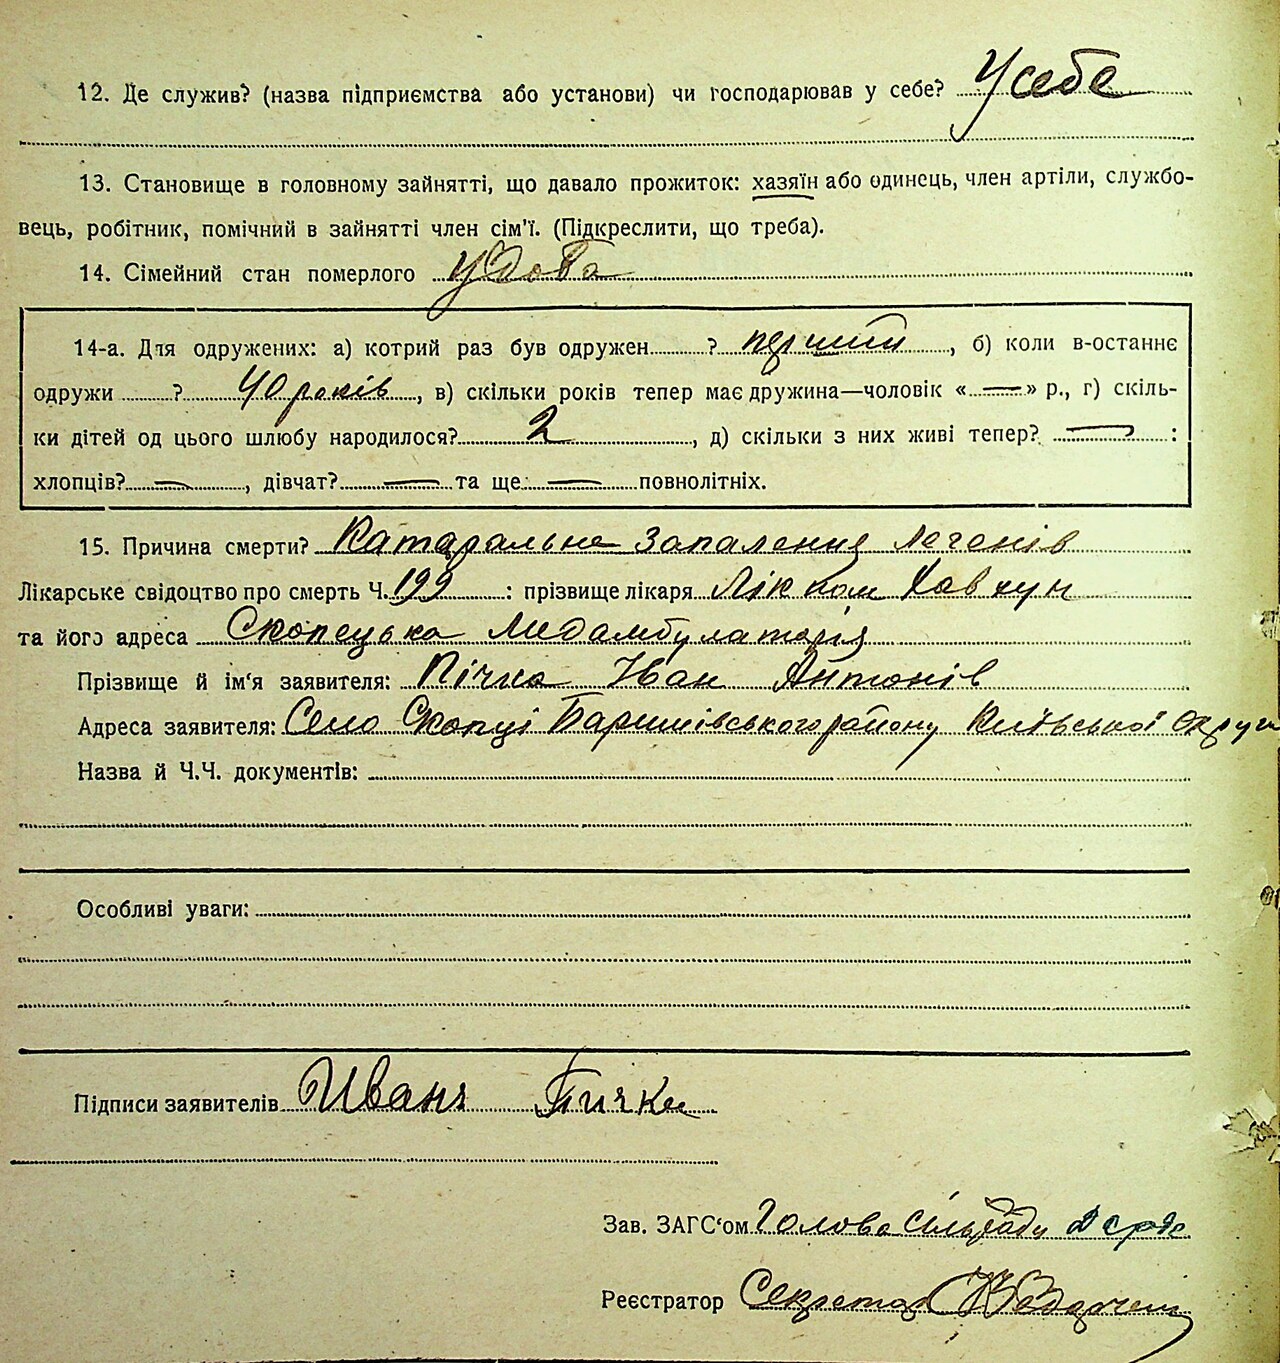 12. Де служив? (назва підприємства або установи) чи господарював у себе? У себе
13. Становище в головному зайнятті, що давало прожиток: хазяїн або одинець, член артіли, службо-
вець, робітник, помічний в зайнятті член сім'ї. (Підкреслити, що треба).
14. Сімейний стан померлого удова
14-а. Для одружених: а) котрий раз був одружен......? перший, б) коли в-останнє
одружи ......? 40 років, в) скільки років тепер має дружина—чоловік «—» р., г) скіль-
ки дітей од цього шлюбу народилося? 2, д) скільки з них живі тепер? — :
хлопців? —, дівчат? — та ще — повнолітніх.
15. Причина смерти? Катаральне Запалення Легенів
Лікарське свідоцтво про смерть Ч. 199 : прізвище лікаря Лікпом
та його адреса Скопецька Медамбулаторія
Прізвище й ім'я заявителя: Пічка Іван Антонів
Адреса заявителя: Село Скопці Баришівського району Київської Округи
Назва й Ч.Ч. документів:
Особливі уваги:
Підписи заявителів Иванъ Пичка
Зав. ЗАГС'ом Голова Сільради
Реєстратор Секретар